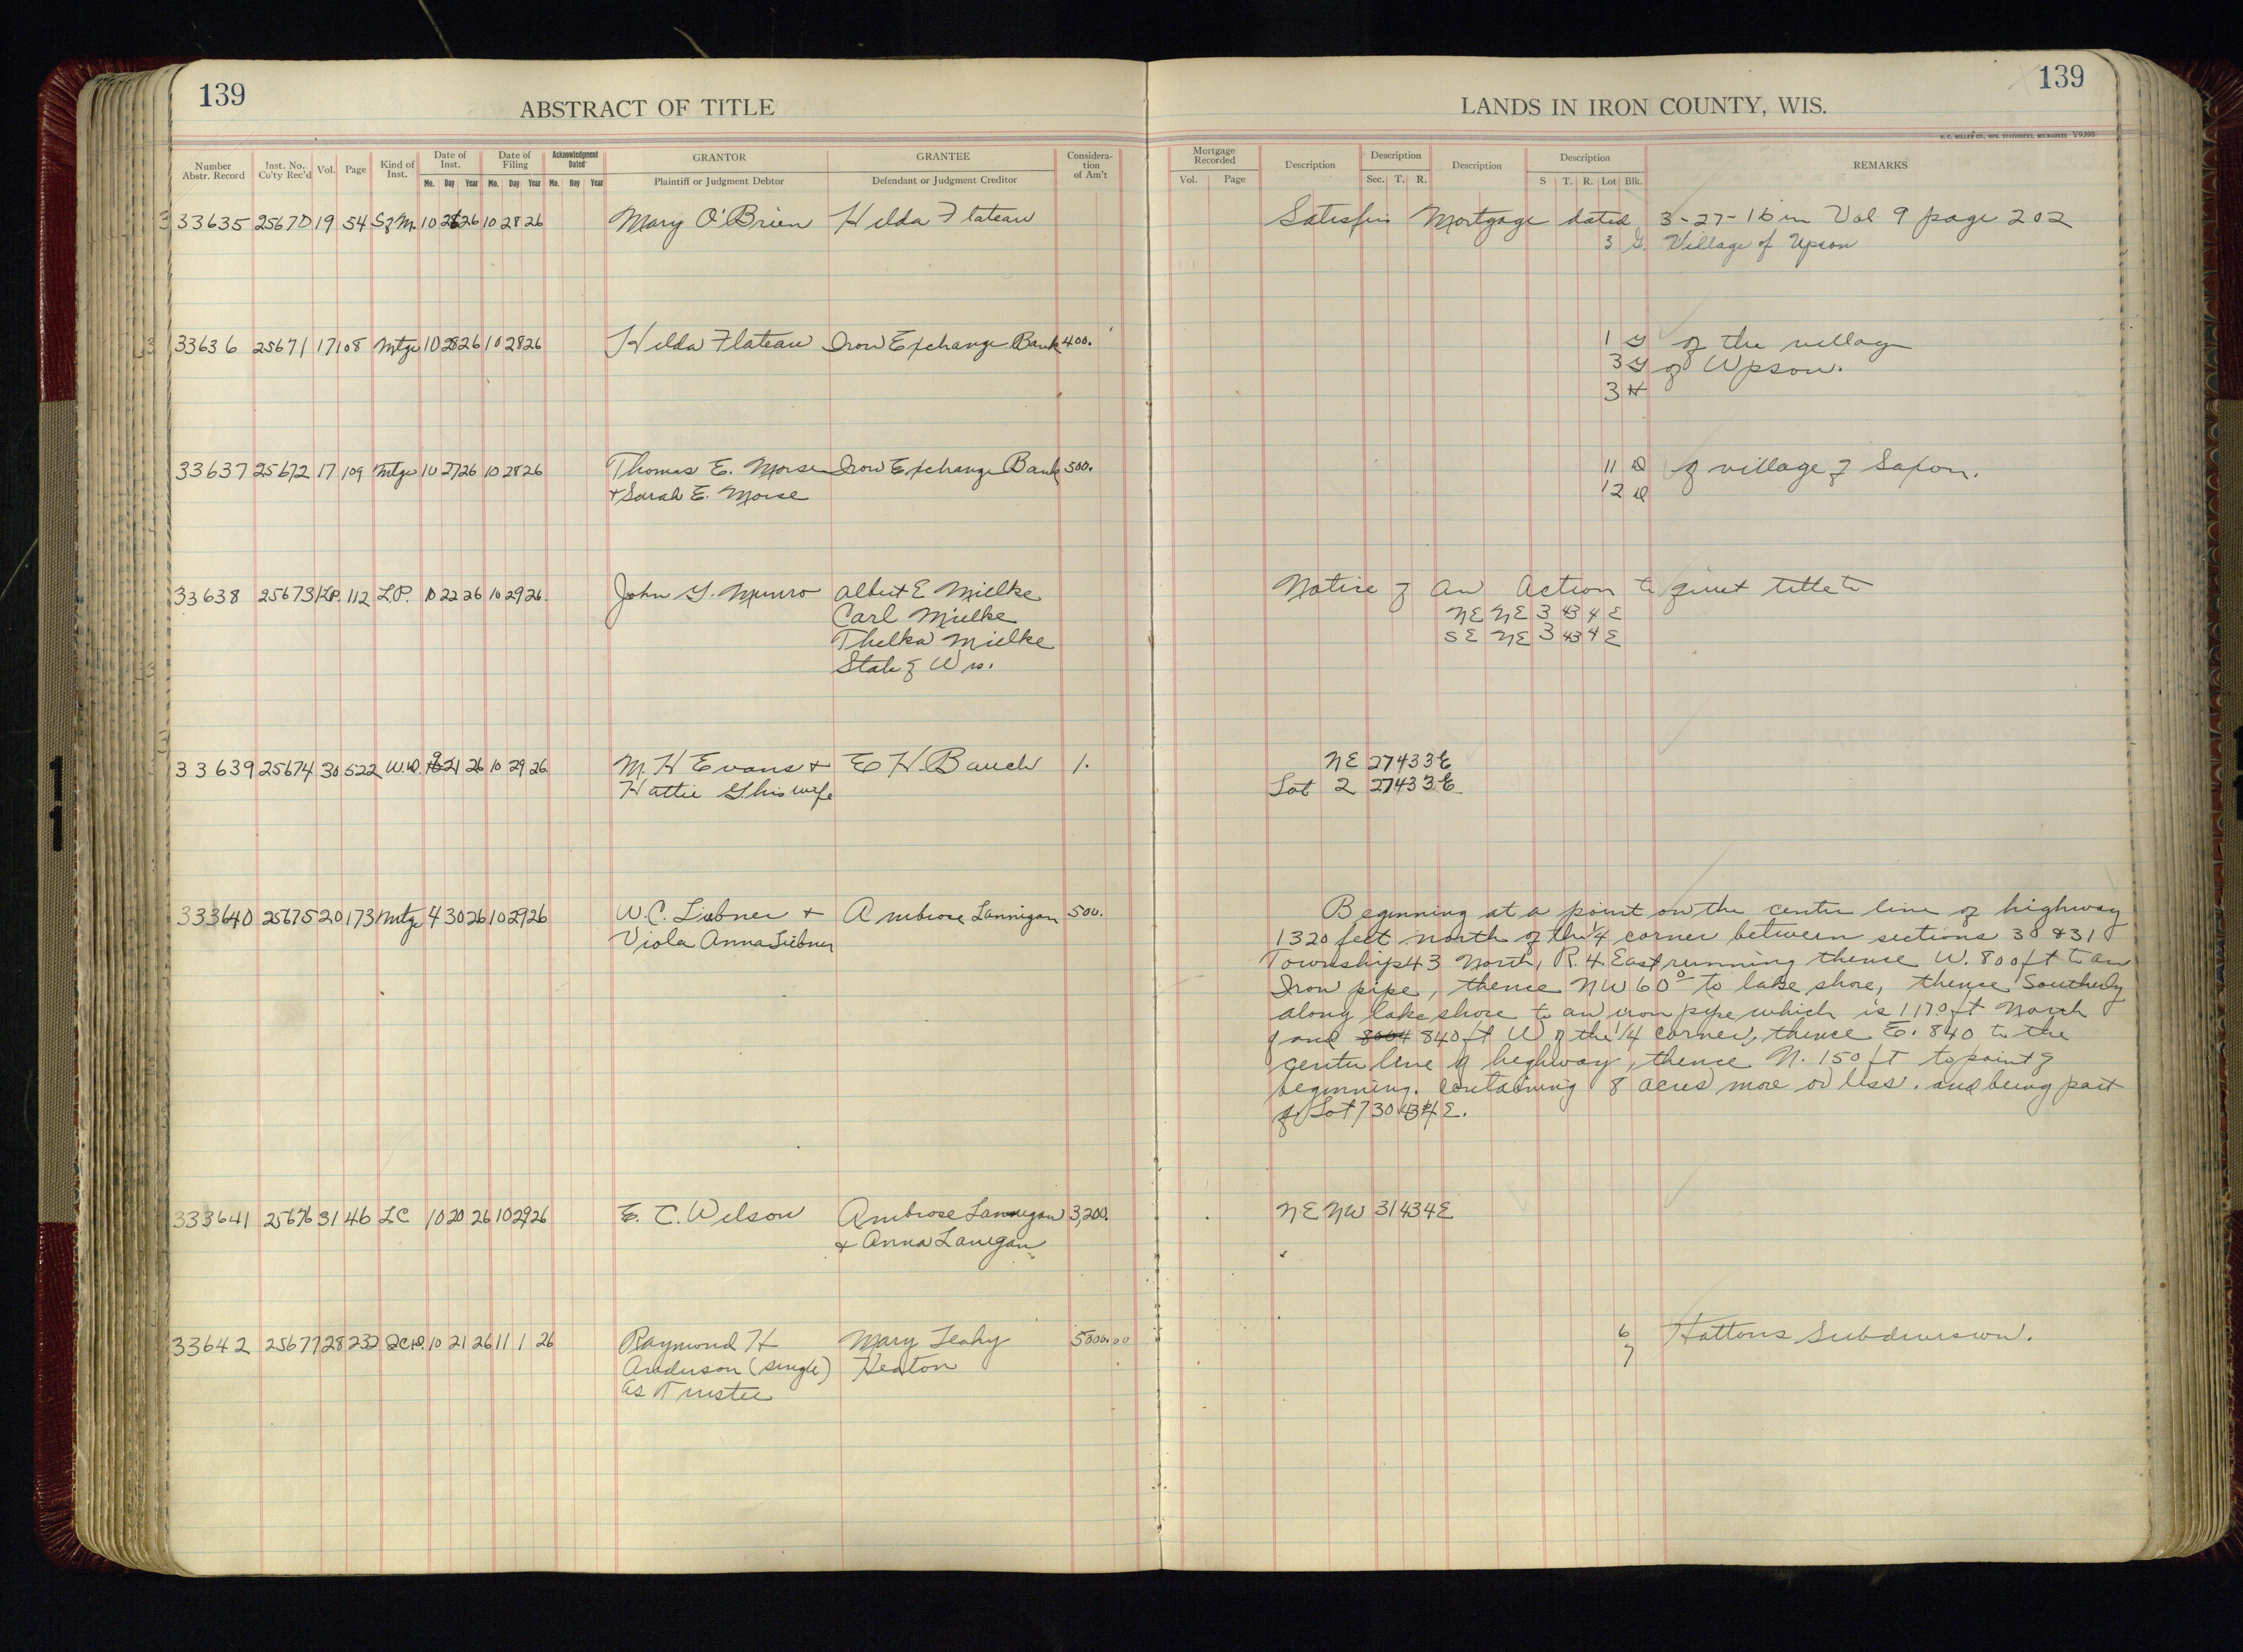 139
ABSTRACT OF TITLE
LANDS IN IRON COUNTY, WIS.
139
H. C. MILLER CO., MFG. STATIONERS, MILWAUKEE Y9398
Number Abstr. Record Inst. No. Co'ty Rec'd Vol. Page Kind of Inst. Date of Inst. Mo. Day Year Date of Filing Mo. Day Year Acknowledgment Dated Mo. Day Year GRANTOR Plaintiff or Judgment Debtor GRANTEE Defendant or Judgment Creditor Consideration of Am't Mortgage Recorded Vol. Page Description Description Sec. T. R. Description Description S T. R. Lot Blk. REMARKS
33635 25670 19 54 S of M. 10 28 26 10 28 26 Mary O'Brien Hilda Flateau Satisfies Mortgage dated 3-27-16 in Vol 9 page 202
3 G. Village of Upson
33636 25671 17 108 Mtge 10 28 26 10 28 26 Hilda Flateau Iron Exchange Bank 400. 1 G of the village
3 G of Upson.
3 H
33637 25672 17 109 Mtge 10 27 26 10 28 26 Thomas E. Morse Iron Exchange Bank 500. 11 D of village of Saxon.
& Sarah E. Morse 12 D
33638 25673 LP. 112 L.P. 10 22 26 10 29 26. John G. Munro Albert E Mielke Notice of an Action to quiet title to
Carl Mielke NE NE 3 43 4 E
Thelka Mielke SE NE 3 43 4 E
State of Wis.
33639 25674 30 522 W.D. 9 21 26 10 29 26 M. H Evans & E H. Bauch 1. NE 27 43 3 E
Hattie G his wife Lot 2 27 43 3 E
333640 25675 20 173 Mtge 4 30 26 10 29 26 W. C. Liebner & Ambrose Lannigan 500. Beginning at a point on the center line of highway
Viola Anna Liebner 1320 feet north of the 1/4 corner between sections 30 & 31
Township 43 North, R. 4. East running thence W. 800 ft to an
Iron pipe, thence NW 60° to lake shore, thence Southerly
along lake shore to an iron pipe which is 1170 ft North
and 840 ft W of the 1/4 corner, thence E. 840 to the
center line of highway, thence N. 150 ft to point of
beginning. Containing 8 acres more or less. and being part
of Lot 7 30 43 4 E.
333641 25676 31 46 LC 10 20 26 10 29 26 E. C. Wilson Ambrose Lannigan 3,200. NE NW 31 43 4 E
& Anna Lanigan
33642 25677 28 232 QCD. 10 21 26 11 1 26 Raymond H Mary Leahy 5000.00 6 Hattons Subdivision.
Anderson (single) Heaton 7
as Trustee